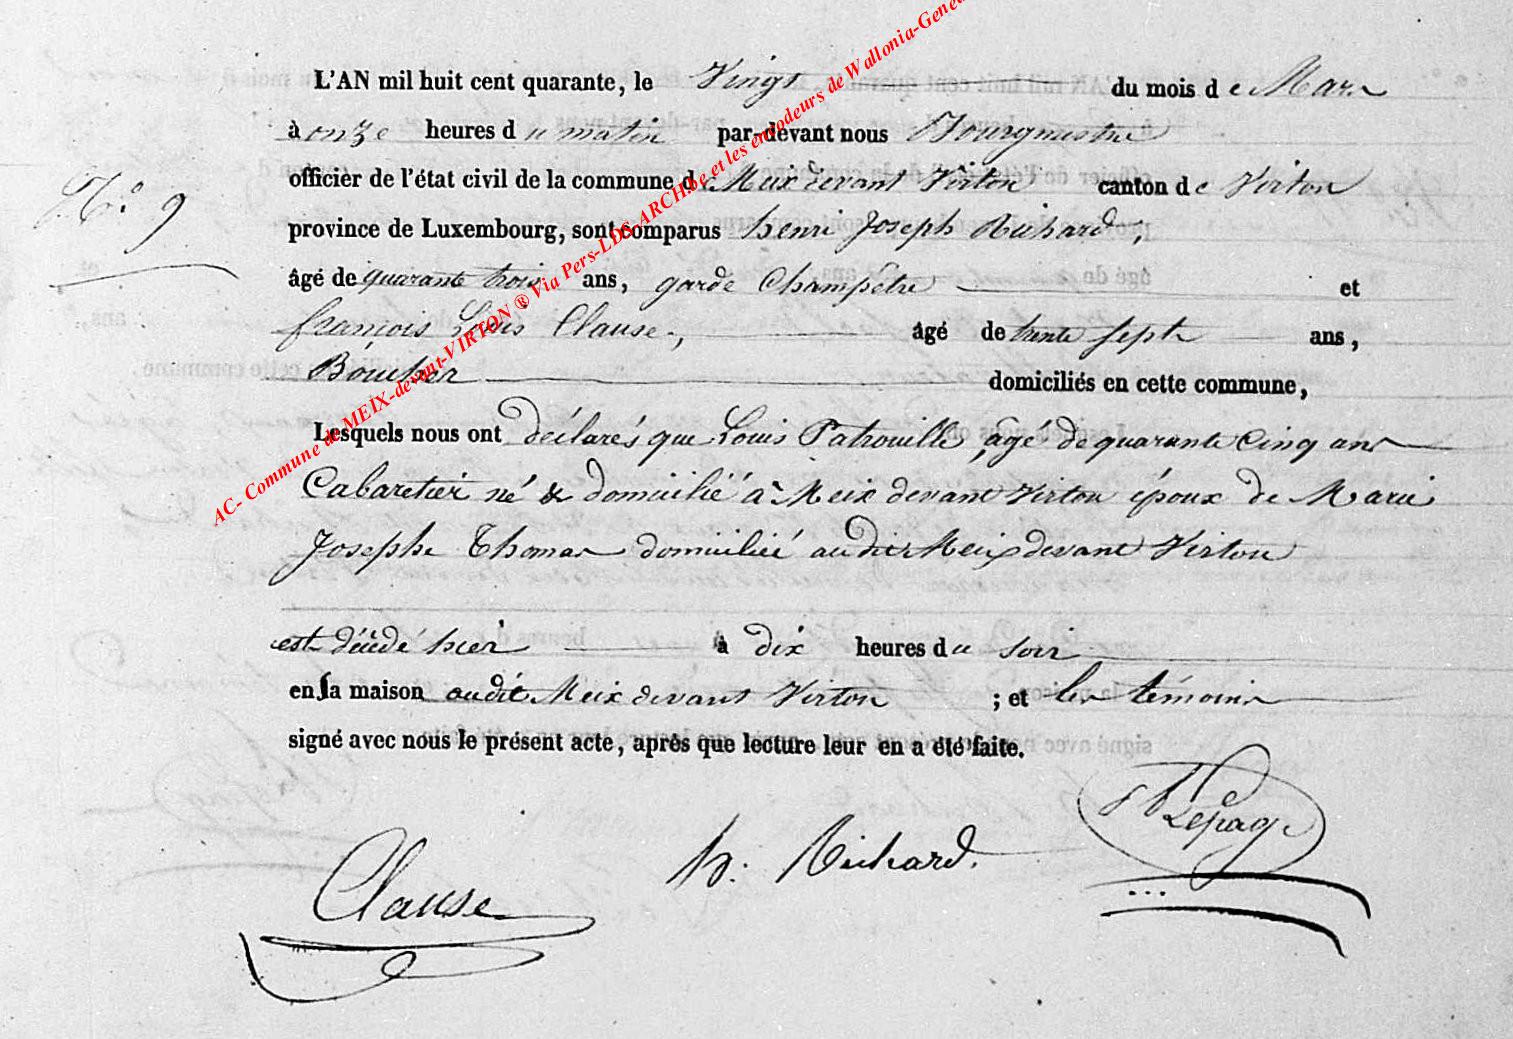 L'AN mil huit cent quarante, le Vingt du mois de Mars
à onze heures du matin par-devant nous Bourgmestre
officier de l'état civil de la commune de Meix devant Virton canton de Virton
N.° 9
province de Luxembourg, sont comparus henri Joseph Richard,
âgé de quarante trois ans, garde Champêtre et
françois Louis Clause, âgé de trente sept ans,
Boucher domiciliés en cette commune,
Lesquels nous ont déclarés que Louis Patrouille, agé de quarante Cinq ans
Cabaretier né & domicilié à Meix devant Virton époux de Marie
Josephe Thomas domiciliée audit Meix devant Virton
est décédé hier à dix heures du soir
en sa maison audit Meix devant Virton ; et les témoins
signé avec nous le présent acte, après que lecture leur en a été faite.
Lepage
h. Richard.
Clause
AC- Commune de MEIX-devant-VIRTON ® Via Pers-LDS-ARCH.be et les encodeurs de Wallonia-Gene